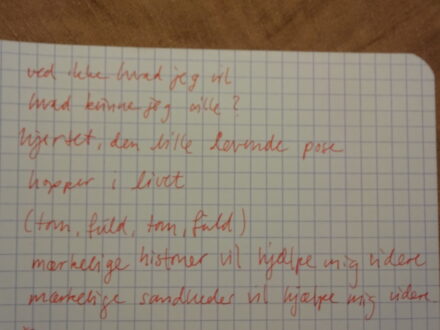 ved ikke hvad jeg vil
hvad kunne jeg ville?
hjertet, den lille levende pose
hopper i livet
(tom, fuld, tom, fuld)
mærkelige historier vil hjælpe mig videre
mærkelige sandheder vil hjælpe mig videre